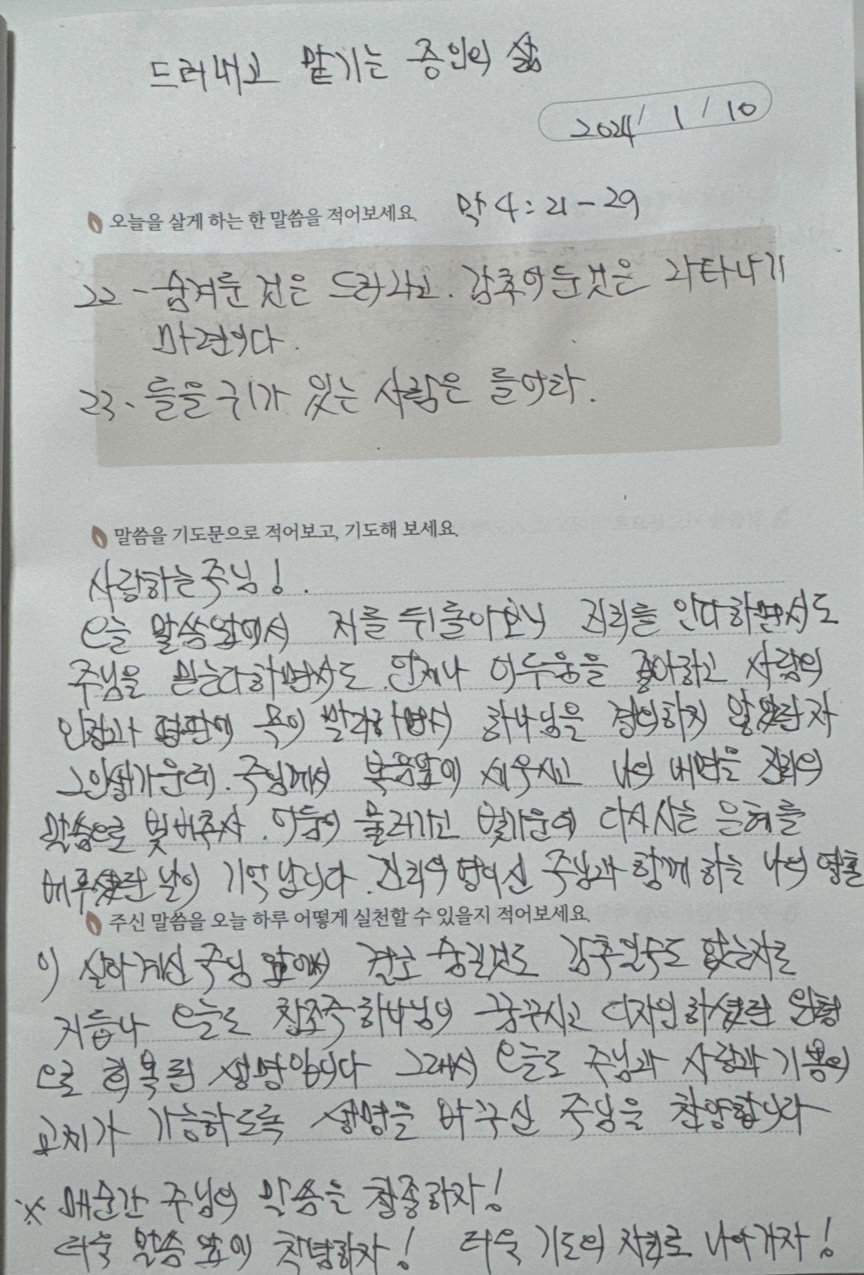 드러내고 맡기는 증인의 삶
2024/ 1 / 10
오늘을 살게 하는 한 말씀을 적어보세요. 막 4: 21-29
22 - 숨겨둔 것은 드러나고. 감추어둔것은 나타나기
마련이다.
23. 들을 귀가 있는 사람은 들어라.
말씀을 기도문으로 적어보고, 기도해 보세요.
사랑하는 주님!.
오늘 말씀앞에서 저를 뒤돌아보니 진리를 안다하면서도
주님을 믿는다하면서도 언제나 어두움을 좋아하고 사람의
인정과 평판에 목이 하면서 하나님을 하지 않았던 자
주님께서 복음앞에 세우시고 나의 내면을 진리의
말씀으로 빛비추사. 어둠이 물러가고 빛가운데 다시사는 은혜를
베푸셨던 날이 기억납니다. 진리의 주님과 함께 하는 나의 영혼
주신 말씀을 오늘 하루 어떻게 실천할 수 있을지 적어보세요.
이 살아계신 주님 앞에서 결코 숨길것도 감추일수도 없는자로
거듭나 오늘도 창조주하나님의 꿈꾸시고 디자인하셨던 원형
으로 회복된 생명입니다 그래서 오늘도 주님과 사람과 기쁨의
교제가 가능하도록 생명을 바꾸신 주님을 찬양합니다
※ 매순간 주님의 말씀을 청종하자!
더욱 말씀 앞에 하자! 더욱 기도의 자리로 나아가자!